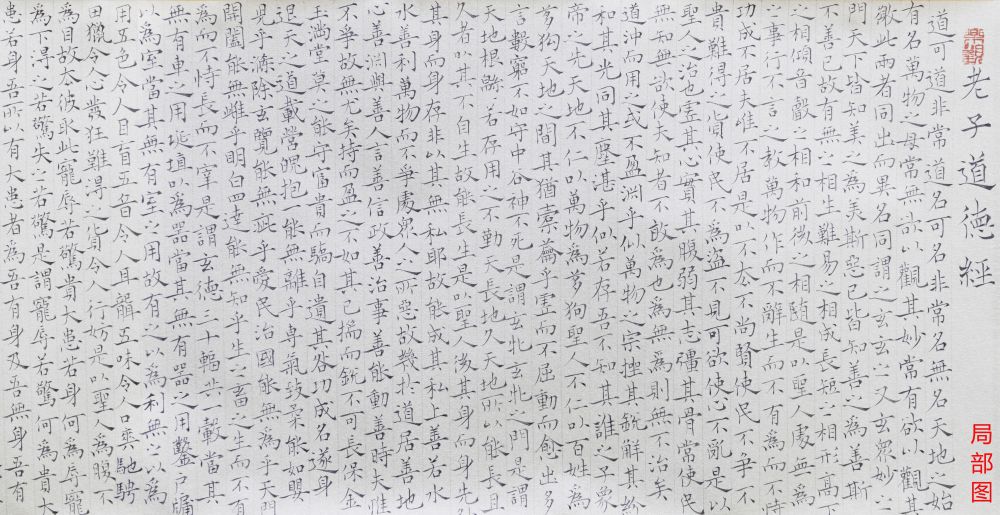 老子道德經
道可道非常道名可名非常名無名天地之始
有名萬物之母常無欲以觀其妙常有欲以觀其
徼此兩者同出而異名同謂之玄玄之又玄衆妙之
門天下皆知美之為美斯惡已皆知善之為善斯
不善已故有無之相生難易之相成長短之相形高下
之相傾音聲之相和前後之相随是以聖人處無為
之事行不言之教萬物作而不辭生而不有為而不恃
功成不居夫唯不居是以不去不尚賢使民不爭不
貴難得之貨使民不為盜不見可欲使心不亂是以
聖人之治也虛其心實其腹弱其志彊其骨常使民
無知無欲使夫知者不敢為也為無為則無不治矣
道沖而用之或不盈淵乎似萬物之宗挫其銳解其紛
和其光同其塵湛乎似若存吾不知其誰之子象
帝之先天地不仁以萬物為芻狗聖人不仁以百姓為
芻狗天地之間其猶橐籥乎虛而不屈動而愈出多
言數窮不如守中谷神不死是謂玄牝玄牝之門是謂
天地根緜緜若存用之不勤天長地久天地所以能長且
久者以其不自生故能長生是以聖人後其身而身先外
其身而身存非以其無私耶故能成其私上善若水
水善利萬物而不爭處衆人之所惡故幾於道居善地
心善淵與善人言善信政善治事善能動善時夫惟
不爭故無尤矣持而盈之不如其已揣而銳不可長保金
玉滿堂莫之能守富貴而驕自遺其咎功成名遂身
退天之道載營魄抱一能無離乎專氣致柔能如嬰
兒乎滌除玄覽能無疵乎愛民治國能無為乎天門
開闔能無雌乎明白四達能無知乎生之畜之生而不有
為而不恃長而不宰是謂玄德三十輻共一轂當其
無有車之用埏埴以為器當其無有器之用鑿戶牖
以為室當其無有室之用故有之以為利無之以為
用五色令人目盲五音令人耳聾五味令人口爽馳騁
田獵令人心發狂難得之貨令人行妨是以聖人為腹不
為目故去彼取此寵辱若驚貴大患若身何為辱寵
為下得之若驚失之若驚是謂寵辱若驚何為貴大
患若身吾所以有大患者為吾有身及吾無身吾有
局部图